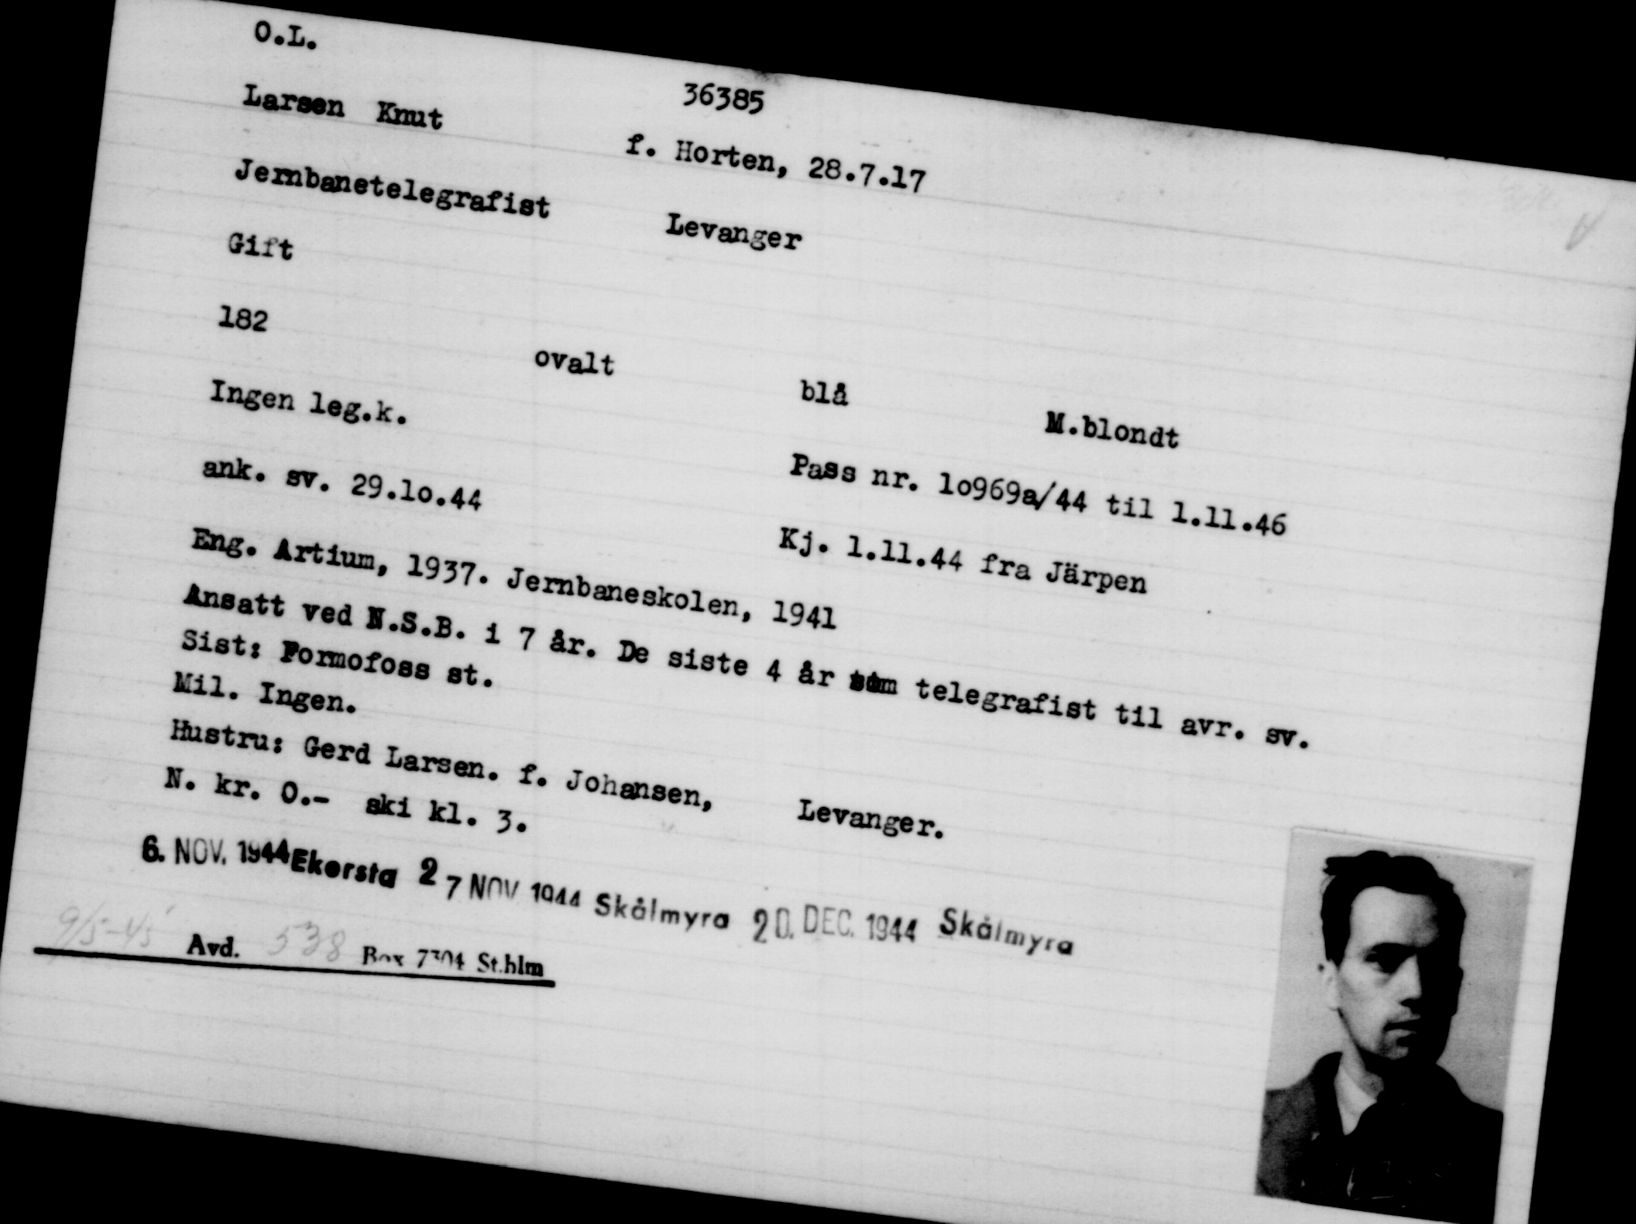 O.L.
36385
Larsen Knut
f. Horten, 28.7.17
Jernbanetelegrafist
Levanger
Gift
182
ovalt
blå
M.blondt
Ingen leg.k.
Pass nr. 1o969a/44 til 1.11.46
ank. sv. 29.1o.44
Kj. 1.11.44 fra Järpen
Eng. Artium, 1937. Jernbaneskolen, 1941
Ansatt ved N.S.B. i 7 år. De siste 4 år som telegrafist til avr. sv.
Sist: Formofoss st.
Mil. Ingen.
Hustru: Gerd Larsen. f. Johansen, Levanger.
N. kr. 0.- ski kl. 3.
6. NOV. 1944 Ekersta 27 NOV 1944 Skålmyra 20. DEC. 1944 Skålmyra
9/5-45 Avd. 538 Box 7304 St.hlm